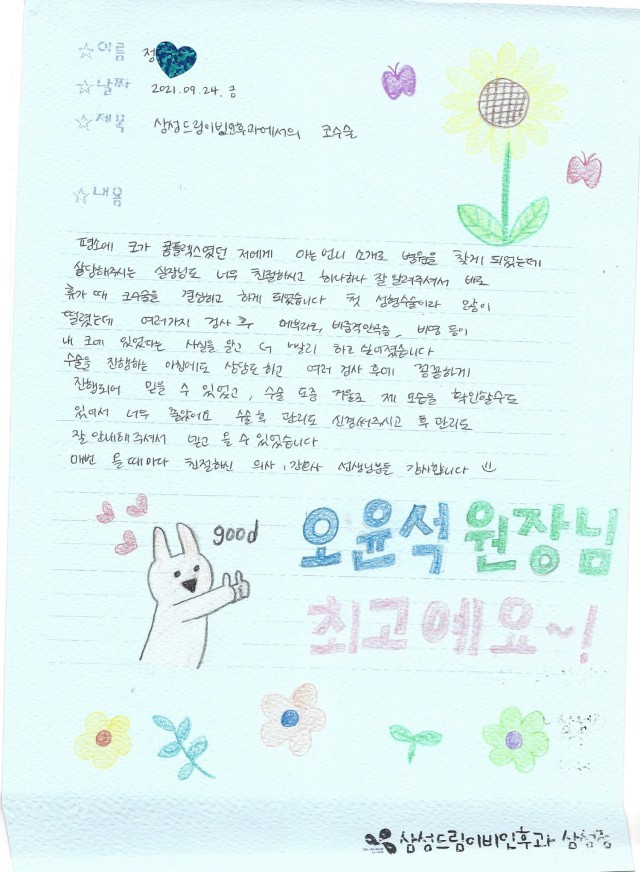 ☆이름 정
☆날짜 2021.09.24. 금
☆제목 삼성드림이비인후과에서의 코수술
☆내용
평소에 코가 콤플렉스였던 저에게 아는언니 소개로 병원을 찾게 되었는데
상담해주시는 실장님도 너무 친절하시고 하나하나 잘 알려주셔서 바로
휴가 때 코수술을 결정하고 하게 되었습니다 첫 성형수술이라 많이
떨렸는데 여러가지 검사 후 비중격만곡증, 비염 등이
내 코에 있었다는 사실을 알고 더 빨리 하고 싶어졌습니다
수술을 진행하는 아침에도 상담도 하고 여러 검사 후에 꼼꼼하게
진행되어 믿을 수 있었고, 수술 도중 거울로 제 모습을 확인할수도
있어서 너무 좋았어요 수술 후 관리도 신경써주시고 후 관리도
잘 안내해 주셔서 믿고 올 수 있었습니다
매번 올 때마다 친절하신 의사, 간호사 선생님분들 감사합니다
good
오윤석 원장님
최고예요~!
삼성드림이비인후과 삼성점